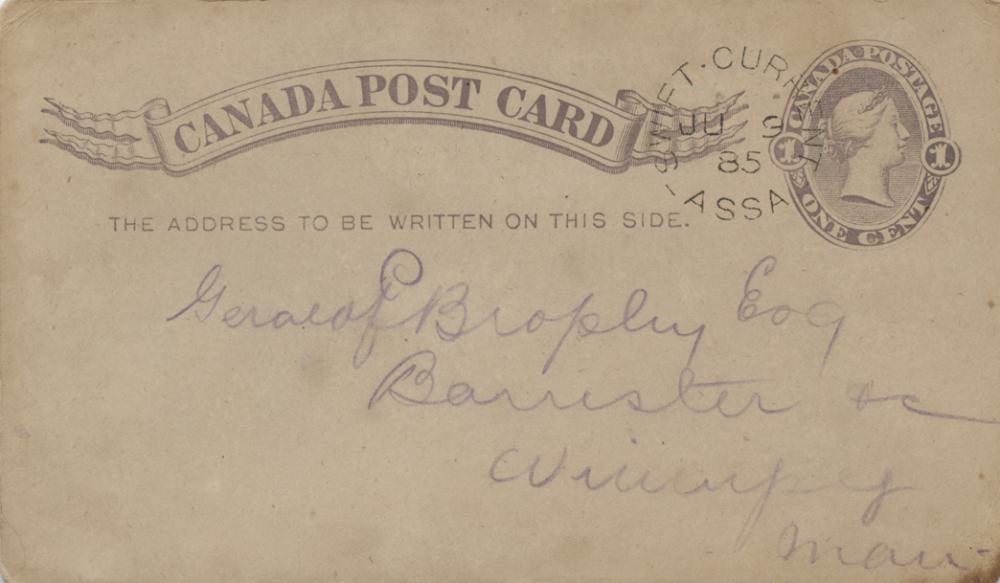 CANADA POST CARD
SWIFT·CURRENT
JU 9
85
ASSA
CANADA POSTAGE
1 1
ONE CENT
THE ADDRESS TO BE WRITTEN ON THIS SIDE.
Brophy Esq
Barrister &c
Winnipeg
Man-